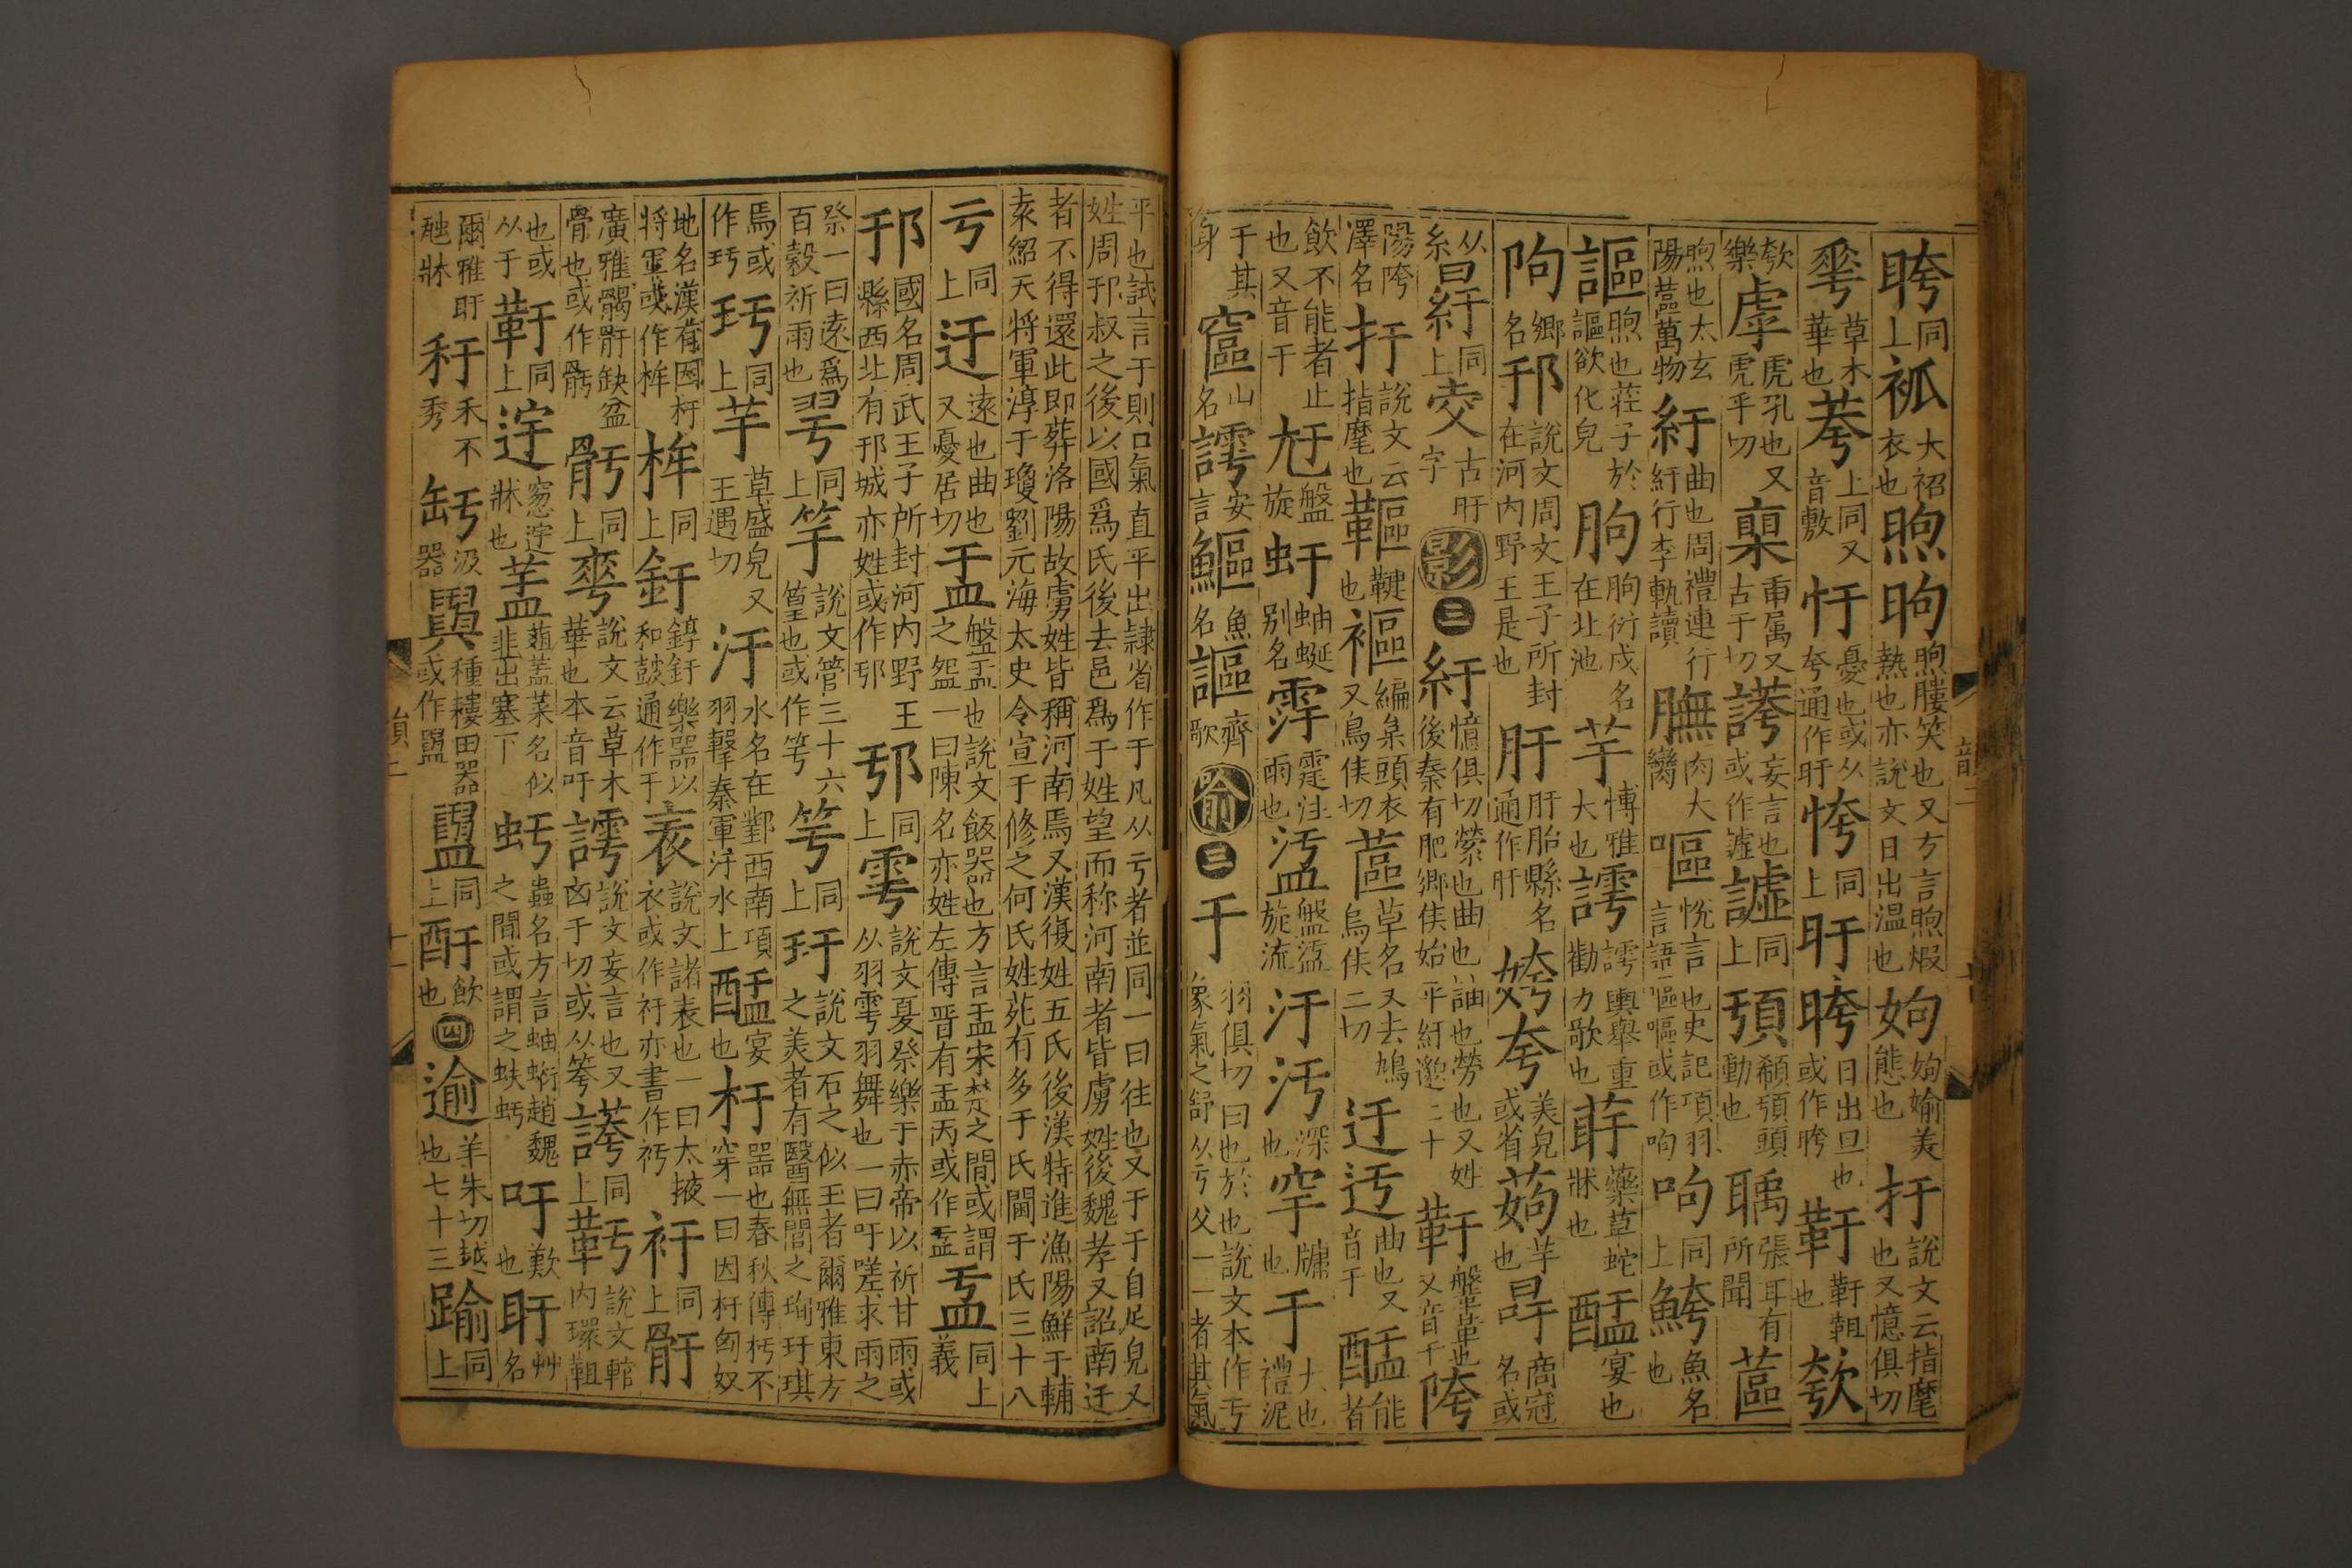 晇同上䘧大袑衣也煦昫煦㬹笑也又方言煦煆熱也亦說文日出温也姁姁媮美態也扜說文云指麾也又憶俱切
𠌶草木華也荂上同又音敷忬憂也或从夸通作盱恗同上旴晇日出旦也或作旿䩒䩒䩆也欨
欨樂虖虎孔也又虎乎切㮚車属又古于切誇妄言也或作謔譃同上頊𩒹頊頭動也聥張耳有所聞蓲
煦也太玄陽蓲萬物紆曲也周禮連行紆行李軌讀膴肉大臠嘔悅言也史記項羽言語嘔嘔或作呴呴同上䱟魚名也
謳煦也荘子於謳欲化皃朐朐衍戍名在北池芋博雅大也謣謣輿舉重勸力歌也蓒藥草蛇牀也醢宴也
䧁鄉名邘說文周文王子所封在河内野王是也盱盱眙縣名通作盱姱夸美皃或省蒟芋也冔商冠名或
从糸昷紆同上㚆古盱字影三紆憶俱切縈也曲也詘也勞也又姓後秦有肥鄉侯始平紆邈二十䩒盤革也又音干陓
陽陓澤名扜說文云指麾也䩽鞬也䙔編枲頭衣又烏侯切蓲草名又去鳩烏侯二切迂迃曲也又音于醢能者
飲不能者止也又音干尪盤旋虶蚰蜒别名雩霔注雨也盓盤盓旋流汙汚深也穻牖也于大也禮泥
于其身𡩾山名謣安言䱸魚名謳齊歌喻三于羽俱切曰也於也說文本作亏象氣之舒从亏父一一者其氣
平也試言于則口氣直平出隷省作于凡从亏者並同一曰往也又于于自足皃又
姓周邘叔之後以國爲氏後去邑爲于姓望而称河南者皆虜姓後魏孝文詔南迁
者不得還此即葬洛陽故虜姓皆稱河南焉又漢復姓五氏後漢特進漁陽鮮于輔
袁紹天将軍淳于瓊劉元海太史令宣于修之何氏姓苑有多于氏闟于氏三十八
亏同上迂遠也曲也又憂居切盂盤盂也說文飯器也方言盂宋楚之間或謂之盌一曰陳名亦姓左傳晋有盂丙或作盓盓同上義
邘國名周武王子所封河内野王縣西北有邘城亦姓或作邒邒同上雩說文夏祭樂于赤帝以祈甘雨或从羽雩羽舞也一曰吁嗟求雨之
祭一曰遠爲百穀祈雨也䍂同上竽說文管三十六篁也或作竽竽同上玗說文石之似玉者爾雅東方之美者有醫無閭之珣玗琪
焉或作玗玗同上芋草盛皃又王遇切汙水名在鄴西南項羽擊秦軍汙水上醢宴也杅器也春秋傳杇不穿一曰因杅匈奴
地名漢有因杅将軍或作桙桙同上釪錞釪樂器以和鼓通作于衺說文諸衺也一曰太掖衣或作衧亦書作衧衧同上骬
廣雅髑骬缺盆骨也或作骬骬同上𠌶說文云草木華也本音吁謣說文妄言也又凶于切或从荂誇同上䩒說文䡝内環靼
也或从于䩒同上䢓窓䢓牀也葢蒩葢菜名似韭出塞下虶蟲名方言蚰蜒趙魏之間或謂之蚨虶吁歎也盱艸名
爾雅盱䖦牀秄禾不秀𦈢汲器㽣種耬田器或作𥂕𥂕同上酑飲也四逾羊朱切越也七十三踰同上